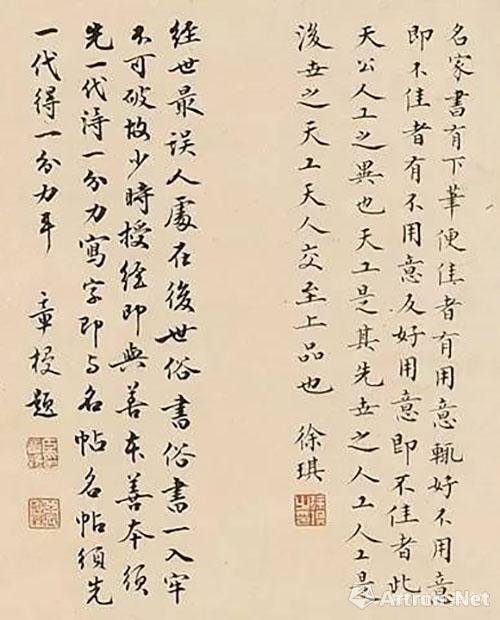 名家書有下筆便佳者有用意輒好不用意
即不佳者有不用意反好用意即不佳者此
天公人工之異也天工是其先世之人工人工是
後世之天工天人交至上品也 徐琪
經世最誤人處在後世俗書俗書一入牢
不可破故少時授經即與善本善本須
先一代得一分力寫字即与名帖名帖須先
一代得一分力耳 章梫題
Artron.Net